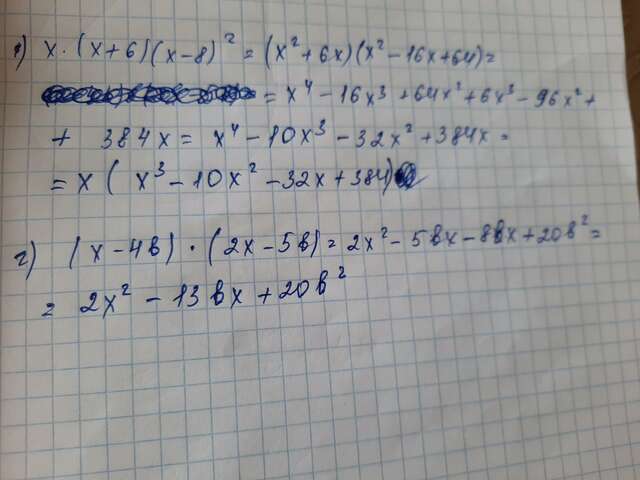 в) x · (x+6)(x-8)² = (x²+6x)(x²-16x+64) =
= x⁴ - 16x³ + 64x² + 6x³ - 96x² +
+ 384x = x⁴ - 10x³ - 32x² + 384x =
= x ( x³ - 10x² - 32x + 384)
г) (x - 4в) · (2x - 5в) = 2x² - 5вx - 8вx + 20в² =
= 2x² - 13вx + 20в²